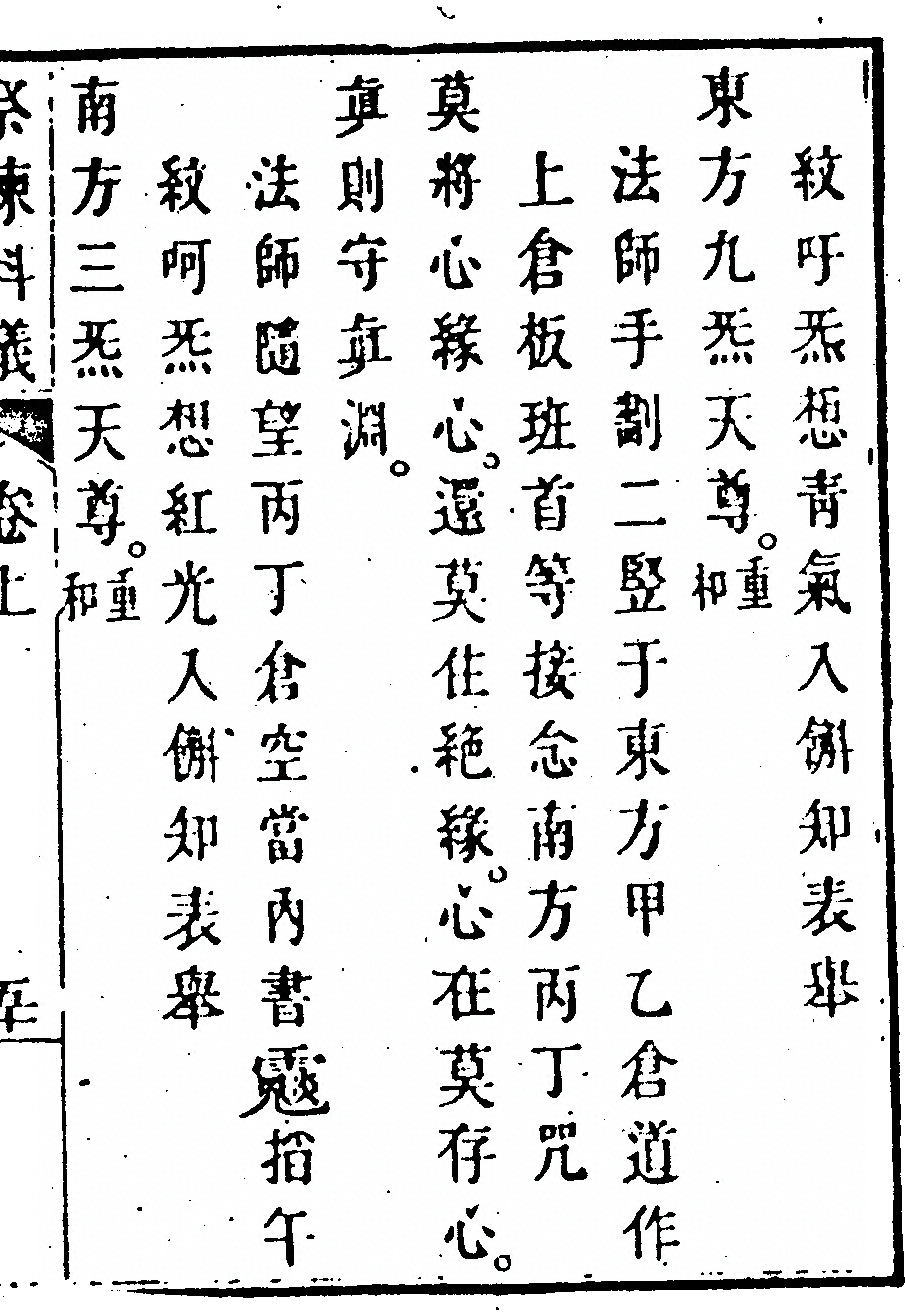 紋吁炁想青氣入斛知表舉
東方九炁天尊。重和
法師手劃二豎于東方甲乙倉道作
上倉板班首等接念南方丙丁咒
莫將心緣心。還莫住絕緣。心在莫存心。
眞則守眞淵。
法師隨望丙丁倉空當內書指午
紋呵炁想紅光入斛知表舉
南方三炁天尊。重和
祭煉科儀 卷上 五